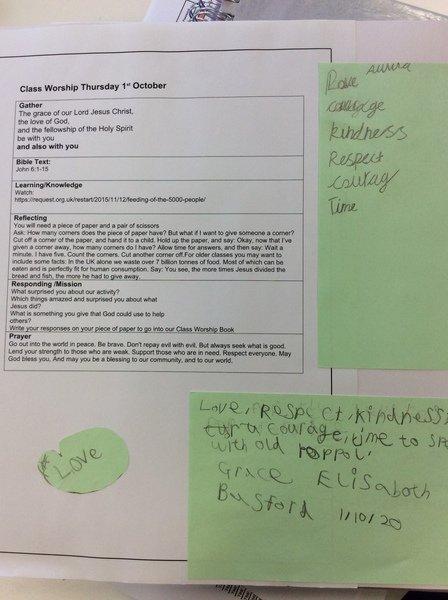 Class Worship Thursday 1st October
Gather
The grace of our Lord Jesus Christ,
the love of God,
and the fellowship of the Holy Spirit
be with you
and also with you
Bible Text:
John 6:1-15
Learning/Knowledge
Watch:
https://request.org.uk/restart/2015/11/12/feeding-of-the-5000-people/
Reflecting
You will need a piece of paper and a pair of scissors
Ask: How many corners does the piece of paper have? But what if I want to give someone a corner?
Cut off a corner of the paper, and hand it to a child. Hold up the paper, and say: Okay, now that I've
given a corner away, how many corners do I have? Allow time for answers, and then say: Wait a
minute. I have five. Count the corners. Cut another corner off.For older classes you may want to
include some facts: In the UK alone we waste over 7 billion tonnes of food. Most of which can be
eaten and is perfectly fit for human consumption. Say: You see, the more times Jesus divided the
bread and fish, the more he had to give away.
Responding /Mission
What surprised you about our activity?
Which things amazed and surprised you about what
Jesus did?
What is something you give that God could use to help
others?
Write your responses on your piece of paper to go into our Class Worship Book
Prayer
Go out into the world in peace. Be brave. Don't repay evil with evil. But always seek what is good.
Lend your strength to those who are weak. Support those who are in need. Respect everyone. May
God bless you, And may you be a blessing to our community, and to our world.
Love
kindness
Respect
Time
Love, Respect, kindness
courage, time to
with old
Grace Elisaboth
Busford 1/10/20